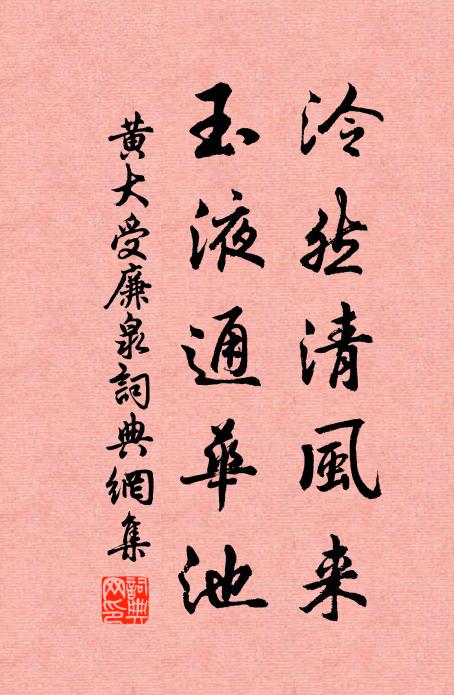 泠然清風来
玉液通華池
黄大受廉泉詞典網集
詞典网印